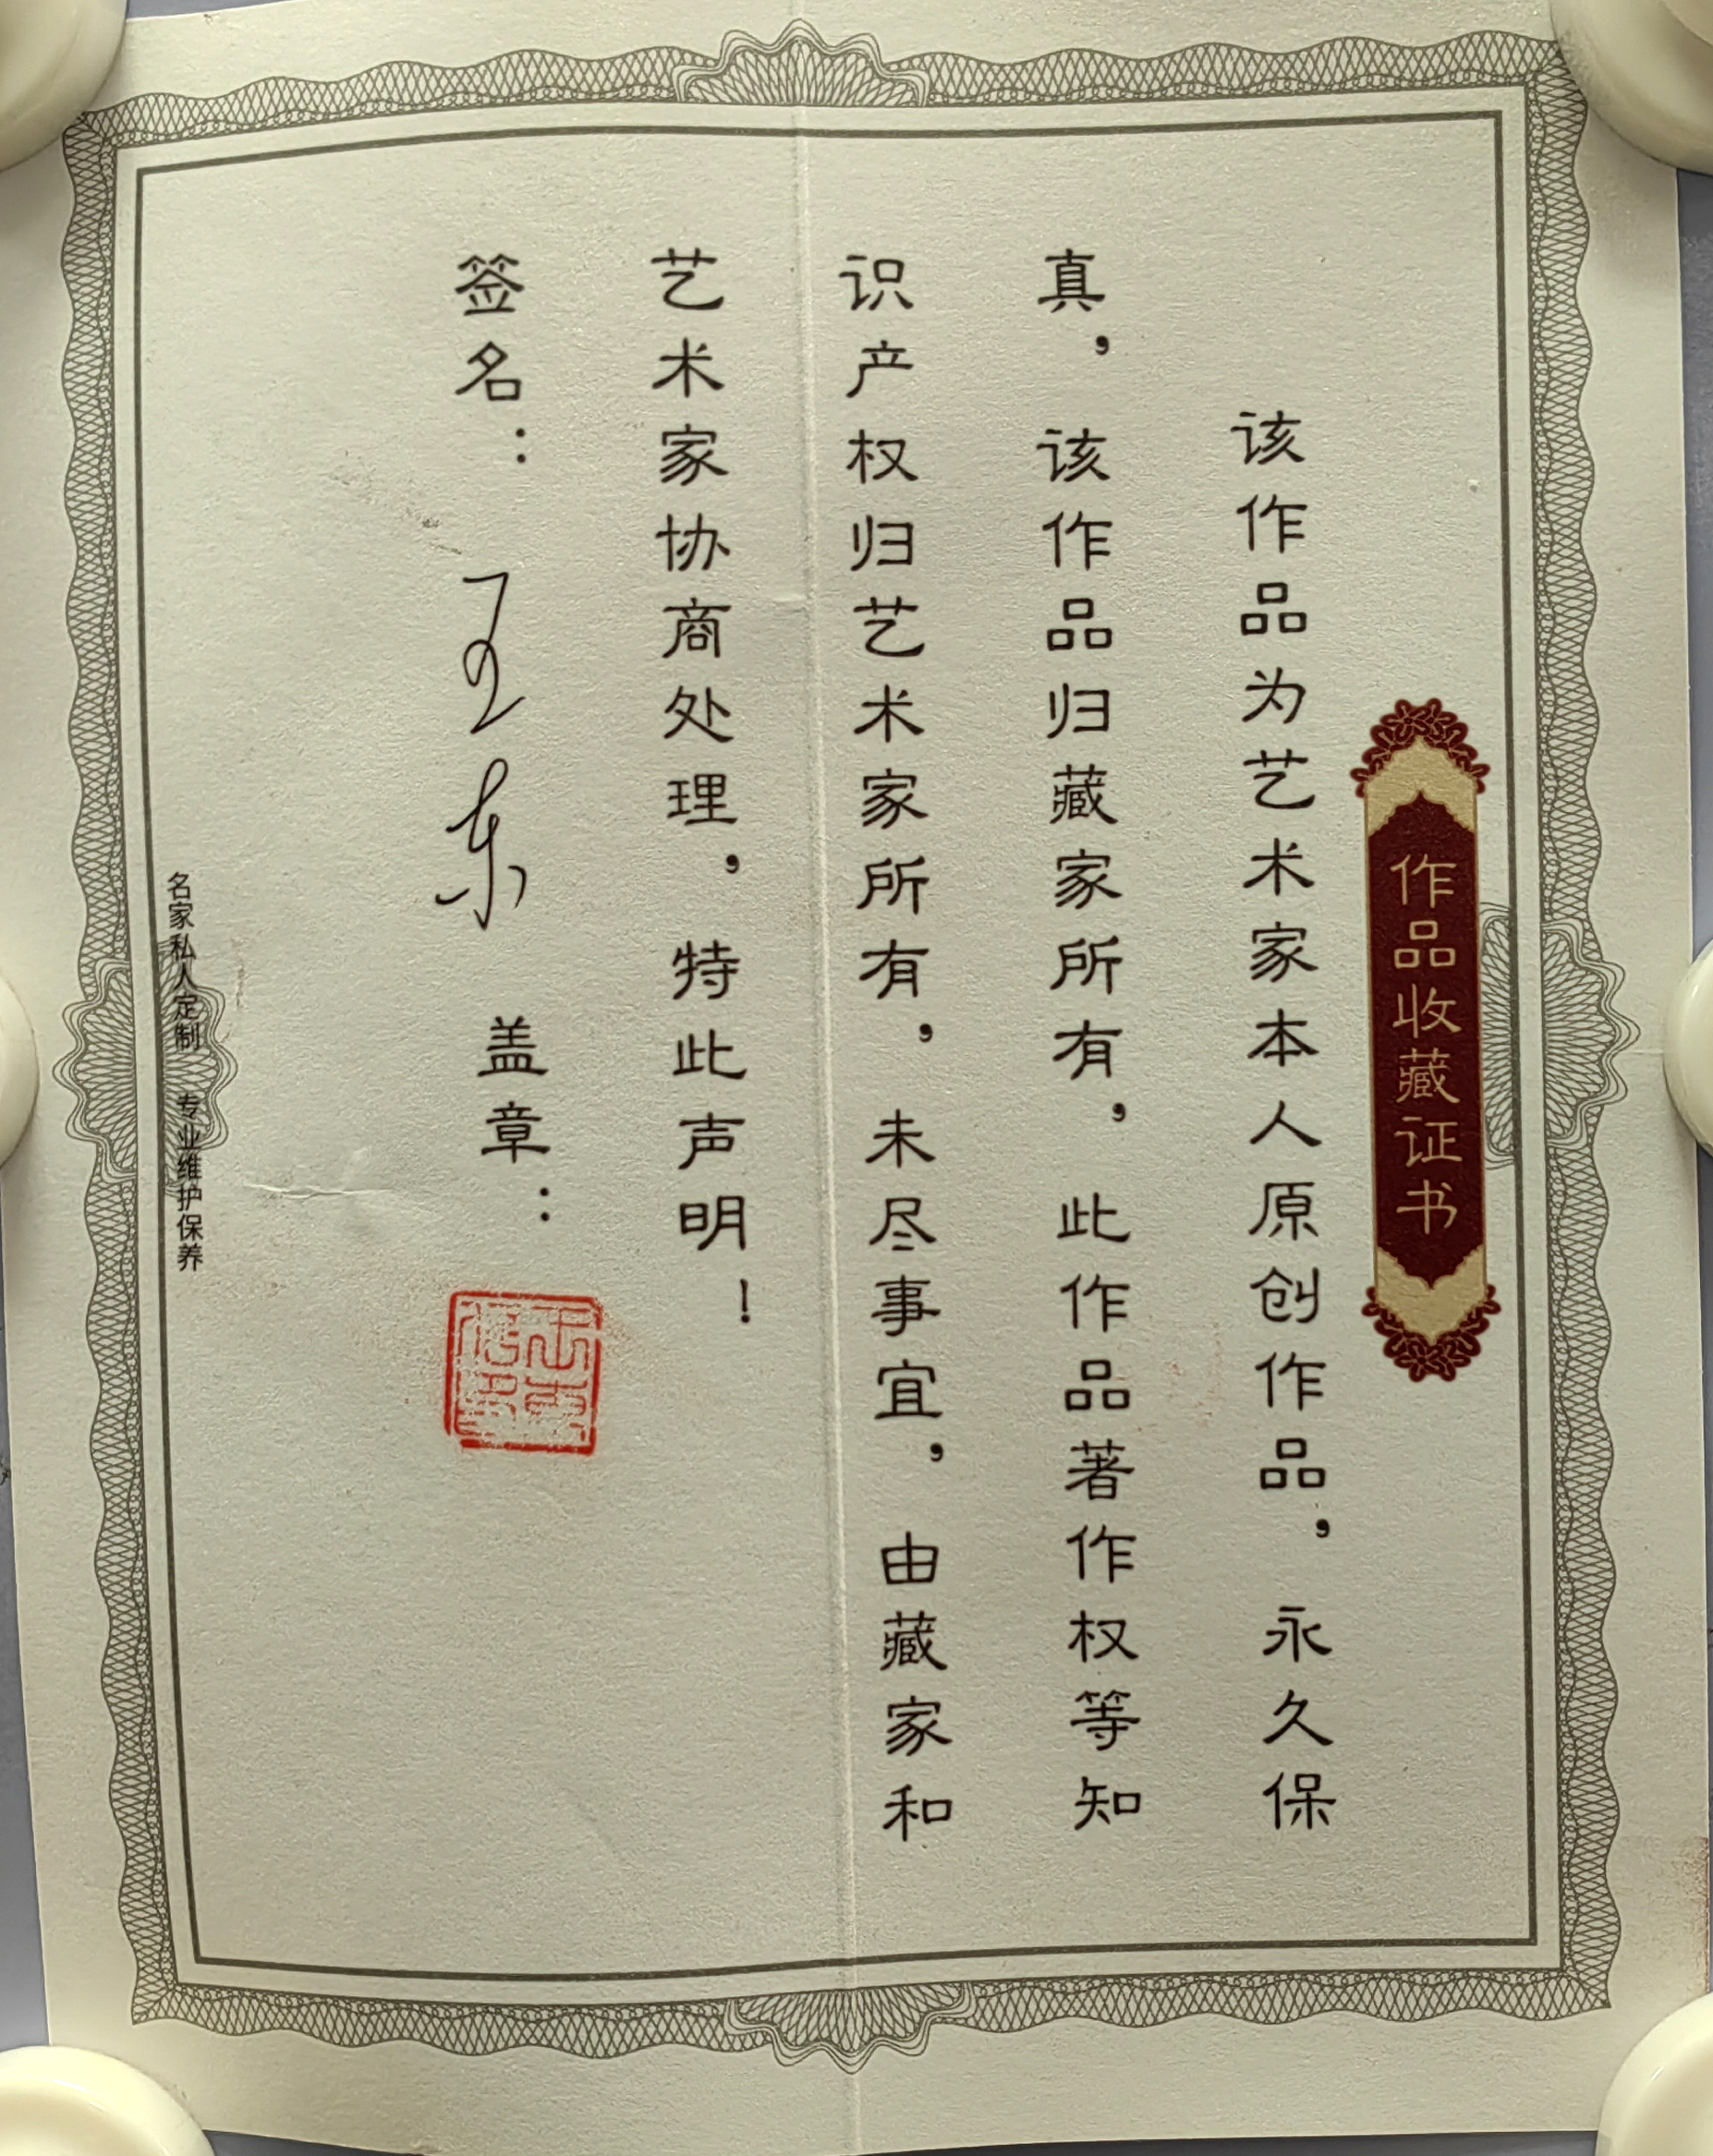 作品收藏证书
该作品为艺术家本人原创作品，永久保
真，该作品归藏家所有，此作品著作权等知
识产权归艺术家所有，未尽事宜，由藏家和
艺术家协商处理，特此声明！
签名：王东 盖章：
王东信印
名家私人定制 专业维护保养